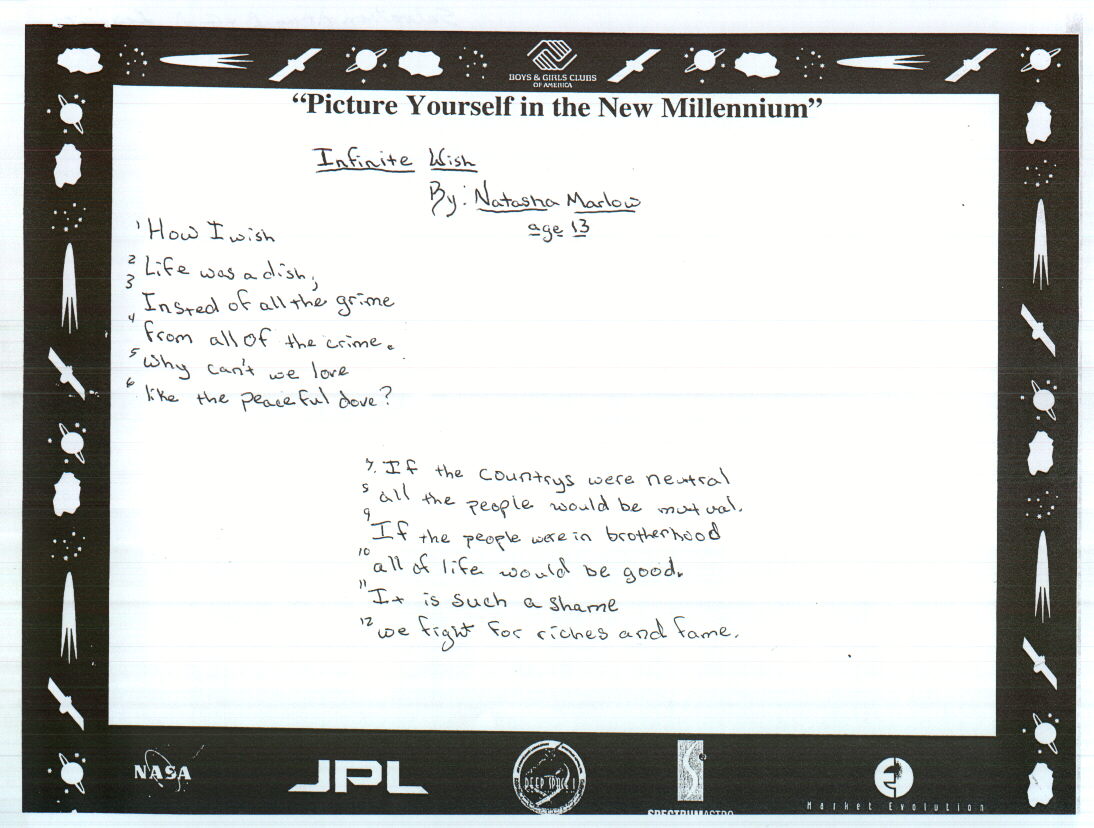 BOYS & GIRLS CLUBS
OF AMERICA
"Picture Yourself in the New Millennium"
Infinite Wish
By: Natasha Marlow
age 13
1 How I wish
2 Life was a dish,
3 Insted of all the grime
4 from all of the crime.
5 Why can't we love
6 like the peaceful dove?
7. If the countrys were neutral
8 all the people would be mutual.
9 If the people were in brotherhood
10 all of life would be good.
11 It is such a shame
12 we fight for riches and fame.
NASA
JPL
DEEP SPACE 1
SPECTRUMASTRO
Market Evolution